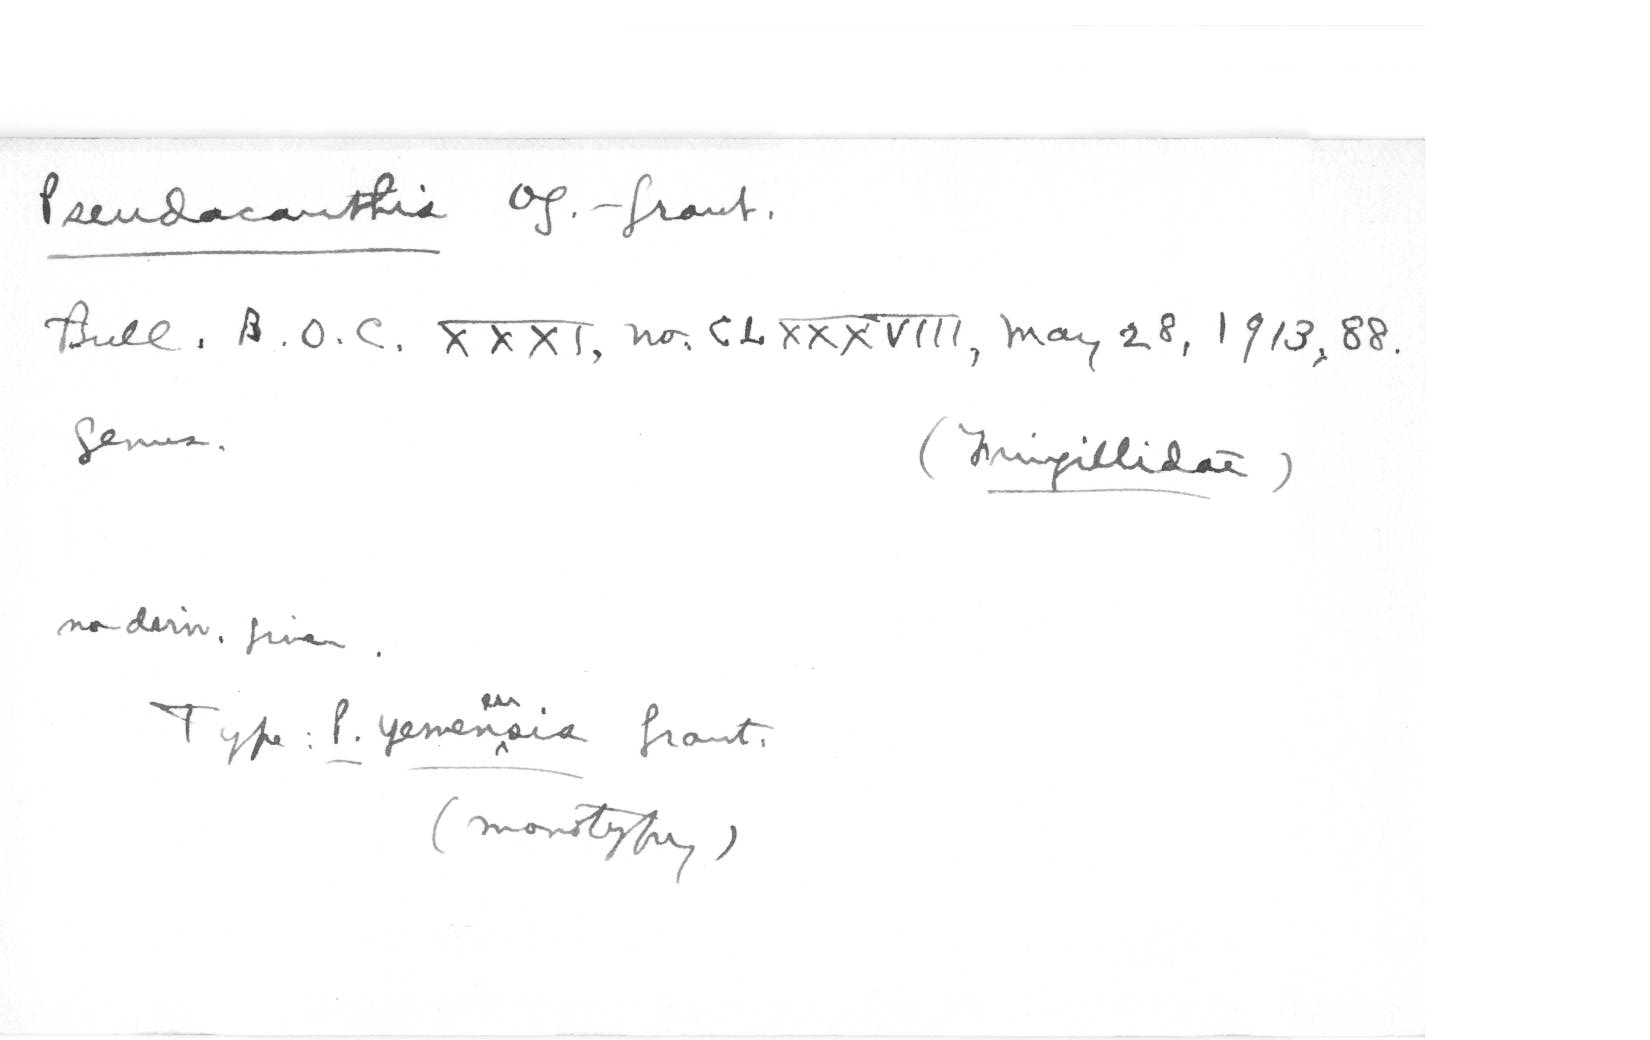 Pseudacanthis Og.-Grant.
Bull. B.O.C. XXXI, no. CLXXXVIII, May 28, 1913, 88.
Genus. (Fringillidae)
no deriv. given.
Type: P. yemenensis Grant.
(monotypy)